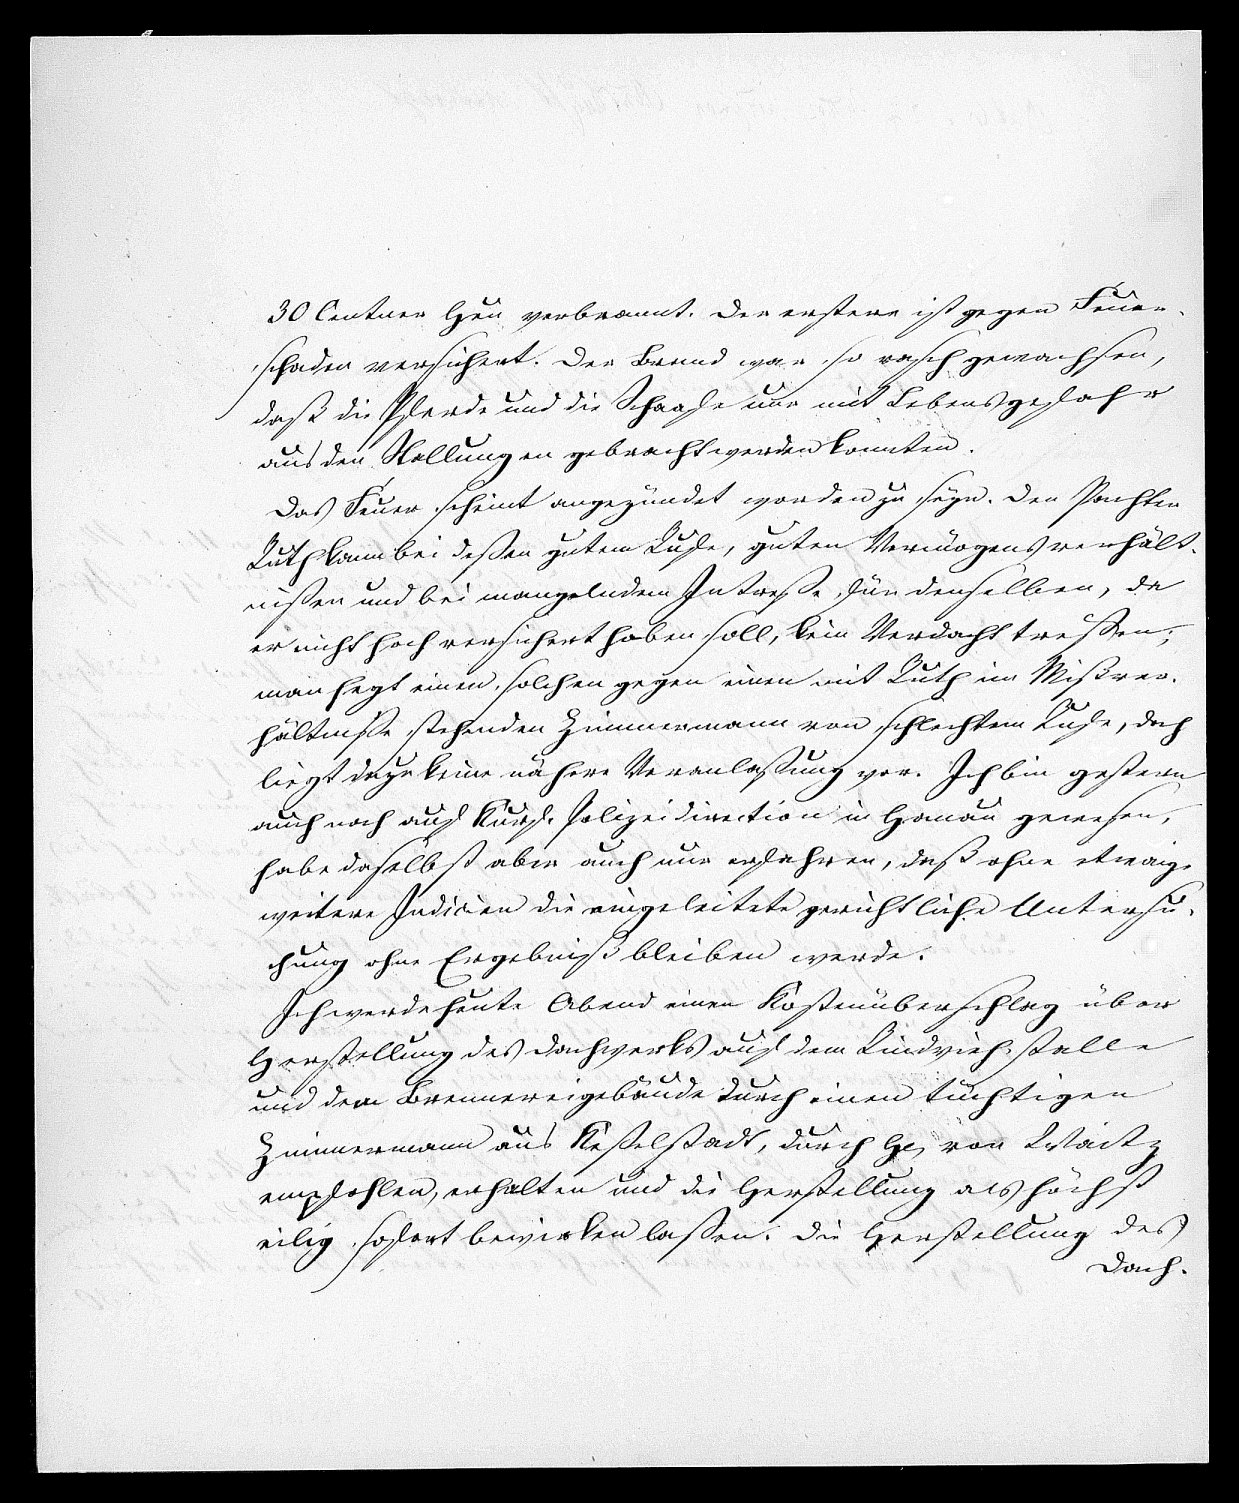 30 Centner Heu verbrannt. Der erstere ist gegen Feuer-
schaden versichert. Der Brand war so rasch gewachsen,
daß die Pferde und die Schaafe nur mit Lebensgefahr
aus den Stallungen gebracht werden konnten.
Das Feuer scheint angezündet worden zu seyn. Den Pachter
Ruth kann bei deßen gutem Rufe, guten Vermögensverhält-
nißen und bei mangelndem Intreße für denselben, da
er nicht hoch versichert haben soll, kein Verdacht treffen;
man hegt einen solchen gegen einen mit Ruth im Mißver-
hältniße stehenden Zimmermann von schlechtem Rufe, doch
liegt dazu keine nähere Veranlaßung vor. Ich bin gestern
auch noch auf Kurf. Polizeidirection in Hanau gewesen,
habe daselbst aber auch nur erfahren, daß ohne etwaige
weitere Indicien die eingeleitete gerichtliche Untersu-
chung ohne Ergebniß bleiben werde.
Ich werde heute Abend einen Kostenüberschlag über
Herstellung des Dachwerks auf dem Rindviehstalle
und dem Brennereigebäude durch einen tüchtigen
Zimmermann aus Keßelstadt, durch H. von Waitz
empfohlen, erhalten und die Herstellung als höchst
eilig sofort bewirken laßen. Die Herstellung des
Dach-